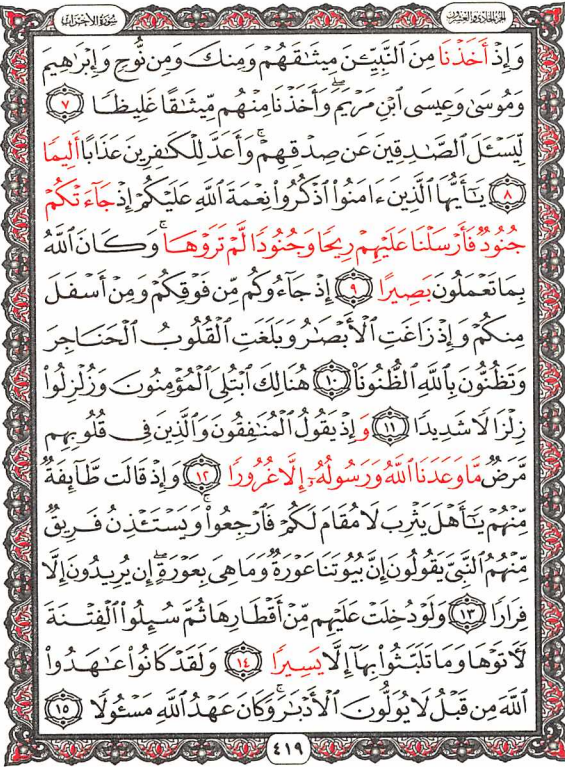 الجزء الحادي والعشرون
سورة الأحزاب
وَإِذْ أَخَذْنَا مِنَ ٱلنَّبِيِّـۧنَ مِيثَٰقَهُمْ وَمِنكَ وَمِن نُّوحٍ وَإِبْرَٰهِيمَ
وَمُوسَىٰ وَعِيسَى ٱبْنِ مَرْيَمَ ۖ وَأَخَذْنَا مِنْهُم مِّيثَٰقًا غَلِيظًا ٧
لِّيَسْـَٔلَ ٱلصَّٰدِقِينَ عَن صِدْقِهِمْ ۚ وَأَعَدَّ لِلْكَٰفِرِينَ عَذَابًا أَلِيمًا
٨ يَٰٓأَيُّهَا ٱلَّذِينَ ءَامَنُوا۟ ٱذْكُرُوا۟ نِعْمَةَ ٱللَّهِ عَلَيْكُمْ إِذْ جَآءَتْكُمْ
جُنُودٌ فَأَرْسَلْنَا عَلَيْهِمْ رِيحًا وَجُنُودًا لَّمْ تَرَوْهَا ۚ وَكَانَ ٱللَّهُ
بِمَا تَعْمَلُونَ بَصِيرًا ٩ إِذْ جَآءُوكُم مِّن فَوْقِكُمْ وَمِنْ أَسْفَلَ
مِنكُمْ وَإِذْ زَاغَتِ ٱلْأَبْصَٰرُ وَبَلَغَتِ ٱلْقُلُوبُ ٱلْحَنَاجِرَ
وَتَظُنُّونَ بِٱللَّهِ ٱلظُّنُونَا۠ ١٠ هُنَالِكَ ٱبْتُلِىَ ٱلْمُؤْمِنُونَ وَزُلْزِلُوا۟
زِلْزَالًا شَدِيدًا ١١ وَإِذْ يَقُولُ ٱلْمُنَٰفِقُونَ وَٱلَّذِينَ فِى قُلُوبِهِم
مَّرَضٌ مَّا وَعَدَنَا ٱللَّهُ وَرَسُولُهُۥٓ إِلَّا غُرُورًا ١٢ وَإِذْ قَالَت طَّآئِفَةٌ
مِّنْهُمْ يَٰٓأَهْلَ يَثْرِبَ لَا مُقَامَ لَكُمْ فَٱرْجِعُوا۟ ۚ وَيَسْتَـْٔذِنُ فَرِيقٌ
مِّنْهُمُ ٱلنَّبِىَّ يَقُولُونَ إِنَّ بُيُوتَنَا عَوْرَةٌ وَمَا هِىَ بِعَوْرَةٍ ۖ إِن يُرِيدُونَ إِلَّا
فِرَارًا ١٣ وَلَوْ دُخِلَتْ عَلَيْهِم مِّنْ أَقْطَارِهَا ثُمَّ سُئِلُوا۟ ٱلْفِتْنَةَ
لَءَاتَوْهَا وَمَا تَلَبَّثُوا۟ بِهَآ إِلَّا يَسِيرًا ١٤ وَلَقَدْ كَانُوا۟ عَٰهَدُوا۟
ٱللَّهَ مِن قَبْلُ لَا يُوَلُّونَ ٱلْأَدْبَٰرَ ۚ وَكَانَ عَهْدُ ٱللَّهِ مَسْـُٔولًا ١٥
٤١٩